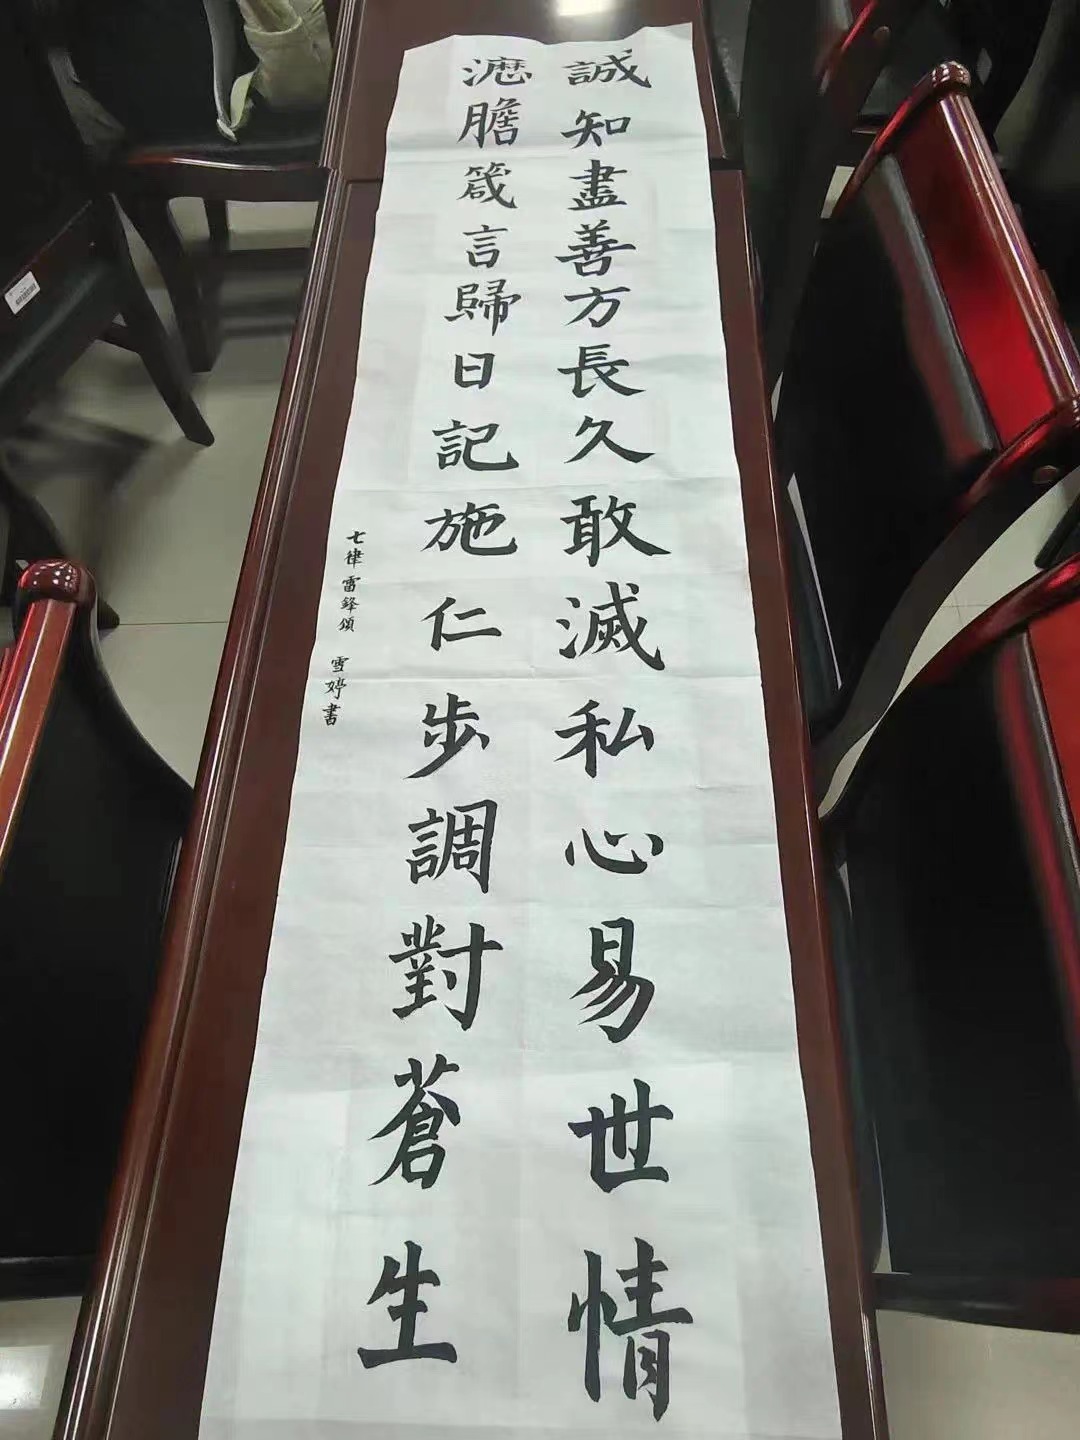 誠知盡善方長久敢滅私心易世情
瀝膽箴言歸日記施仁步調對蒼生
七律雷鋒頌 雪婷書